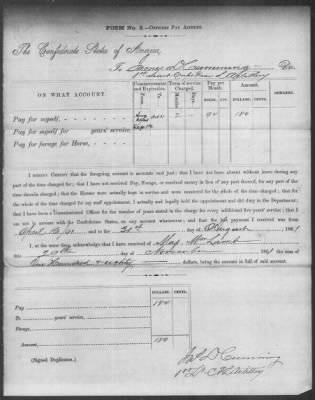 FORM No. 3.—OFFICERS PAY ACCOUNT.
The Confederate States of America,
To James D Cumming Dr.
1st Lieut Artillery
ON WHAT ACCOUNT.
Commencement and Expiration.
Term of service Charged.
PAY PER MONTH.
AMOUNT.
REMARKS.
From
To
Months
Days
DOLLS. CTS.
DOLLARS. CENTS.
Pay for myself, 2 90 180
Pay for myself, years' service,
Pay for forage for Horse,
I HEREBY CERTIFY that the foregoing account is accurate and just; that I have not been absent without leave during any
part of the time charged for; that I have not received Pay, Forage, or received money in lieu of any part thereof, for any part of the
time therein charged; that the Horses were actually kept in service and were mustered for the whole of the time charged; that for the
whole of the time charged for my staff appointment, I actually and legally held the appointment and did duty in the Department;
that I have been a Commissioned Officer for the number of years stated in the charge for every additional five years' service; that I
am not in account with the Confederate States, on any account whatsoever; and that the last payment I received was from
to the day of August 1861
I, at the same time, acknowledge that I have received of Maj
this 20th day of November 1861 the sum of
One Hundred & eighty dollars, being the amount in full of said account.
DOLLARS. CENTS.
Pay 180
To years' service,
Forage,
Amount, 180
(Signed Duplicates.)
Jas D Cumming
1st Lt Artillery